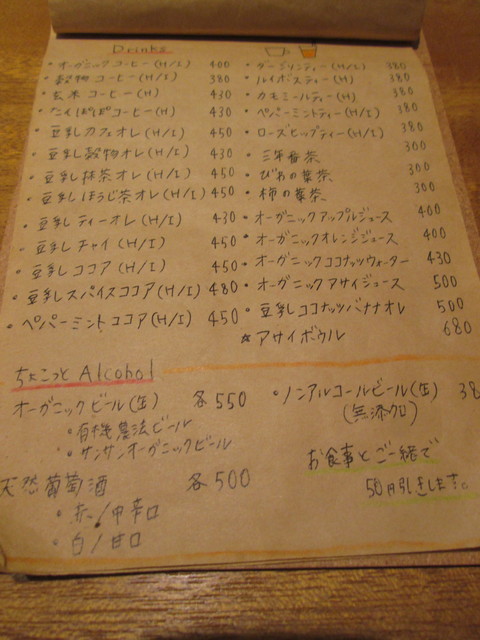 Drinks
・オーガニックコーヒー(H/I) 400
・穀物コーヒー(H/I) 380
・玄米コーヒー(H) 430
・たんぽぽコーヒー(H) 430
・豆乳カフェオレ(H/I) 450
・豆乳穀物オレ(H/I) 430
・豆乳抹茶オレ(H/I) 450
・豆乳ほうじ茶オレ(H/I) 450
・豆乳ティーオレ(H/I) 430
・豆乳チャイ(H/I) 450
・豆乳ココア(H/I) 450
・豆乳スパイスココア(H/I) 480
・ペパーミントココア(H/I) 450
・ダージリンティー(H/I) 380
・ルイボスティー(H) 380
・カモミールティー(H) 380
・ペパーミントティー(H/I) 380
・ローズヒップティー(H/I) 380
・三年番茶 300
・びわの葉茶 300
・柿の葉茶 300
・オーガニックアップルジュース 400
・オーガニックオレンジジュース 400
・オーガニックココナッツウォーター 430
・オーガニックアサイジュース 500
・豆乳ココナッツバナナオレ 500
☆アサイボウル 680
ちょこっと Alcohol
オーガニックビール(缶) 各550
・有機農法ビール
・サンサンオーガニックビール
天然葡萄酒 各500
・赤/中辛口
・白/甘口
・ノンアルコールビール(缶) 38
(無添加)
お食事とご一緒で
50円引きします。